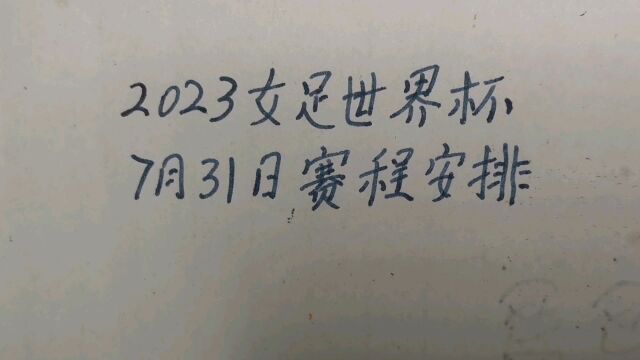 2023女足世界杯
7月31日赛程安排